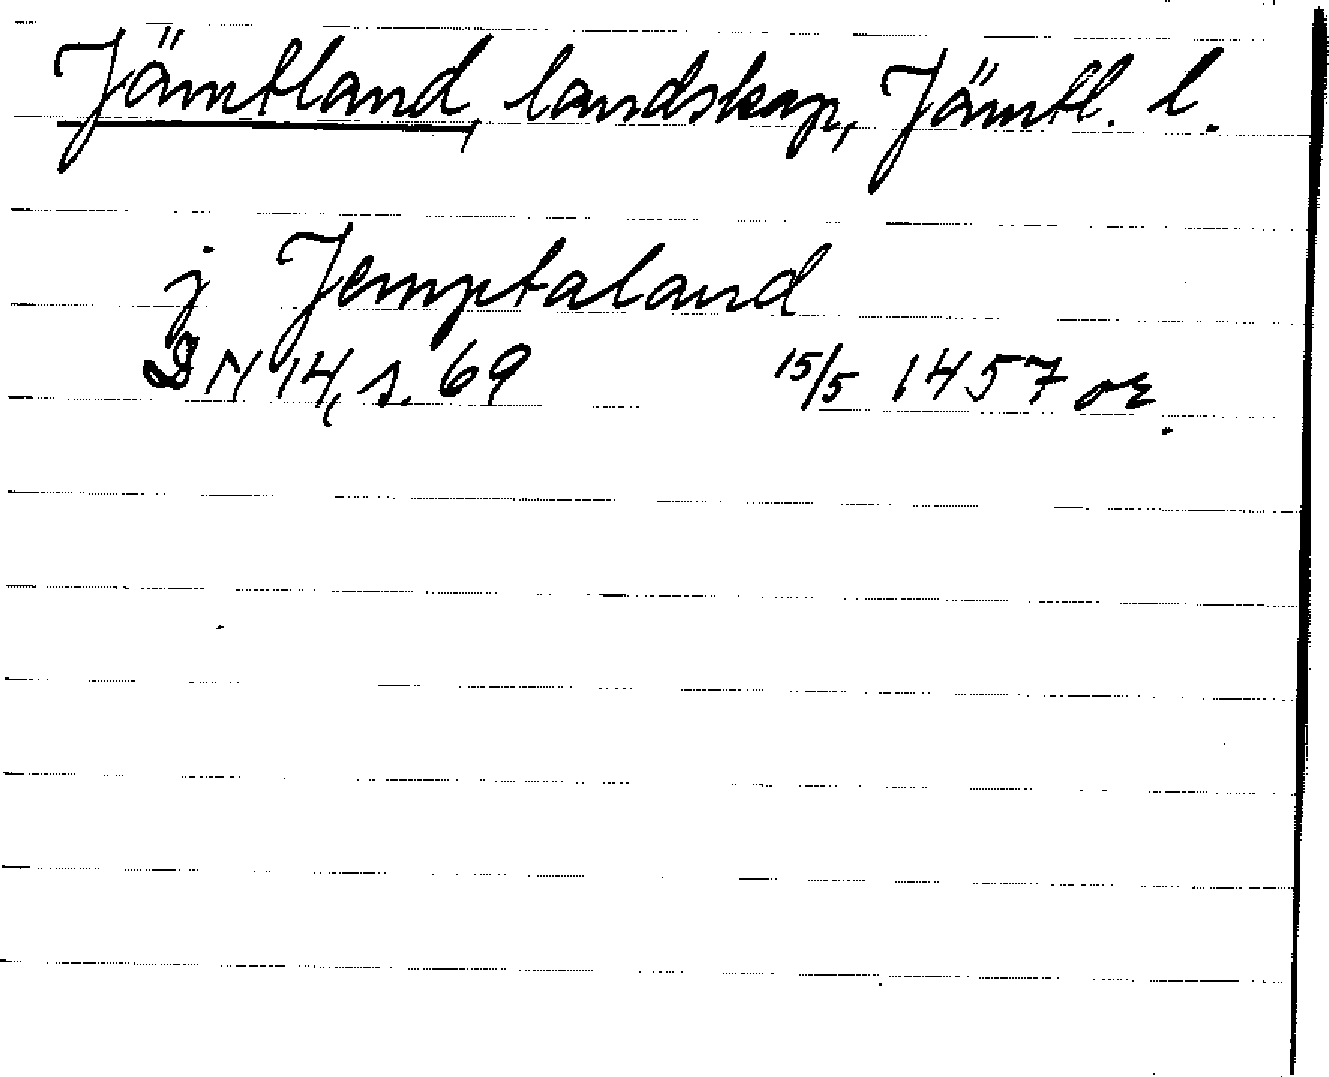 Jämtland, landskap, Jämtl. l.
j Jemptaland
DN 14, s. 69 15/5 1457 or.